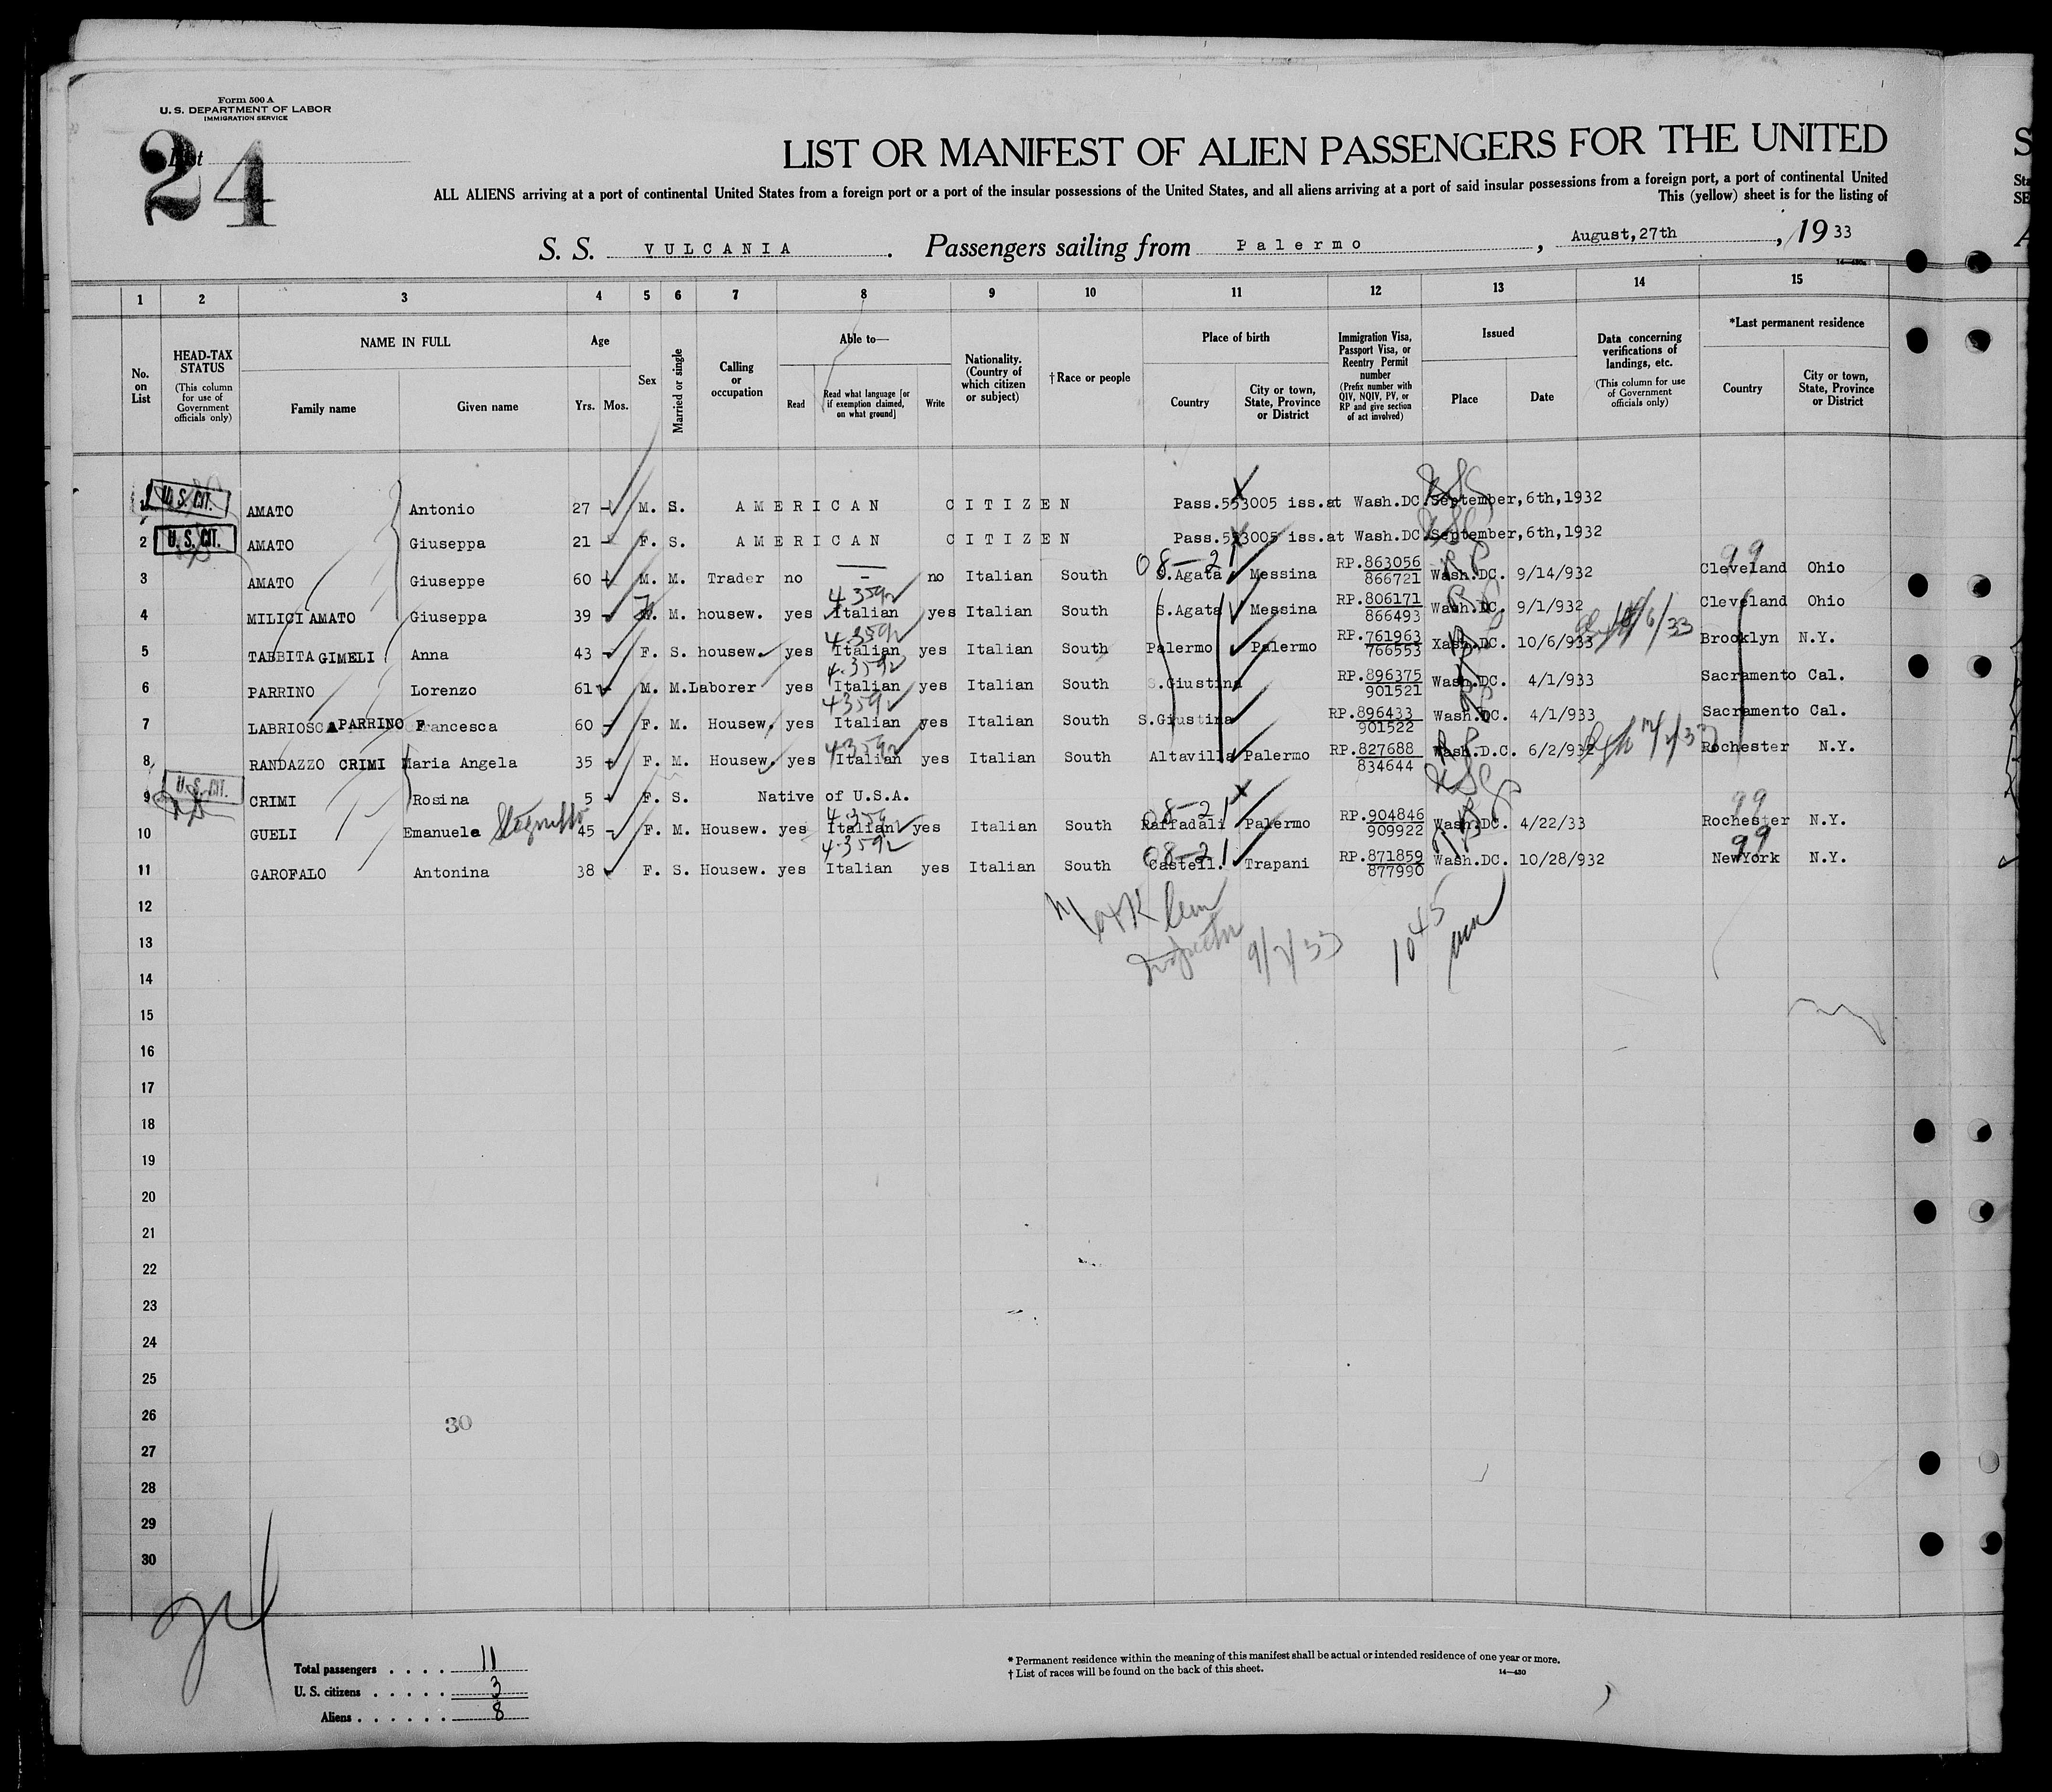 Form 500 A
U. S. DEPARTMENT OF LABOR
IMMIGRATION SERVICE
List
24
LIST OR MANIFEST OF ALIEN PASSENGERS FOR THE UNITED
ALL ALIENS arriving at a port of continental United States from a foreign port or a port of the insular possessions of the United States, and all aliens arriving at a port of said insular possessions from a foreign port, a port of continental United
This (yellow) sheet is for the listing of
S. S. VULCANIA. Passengers sailing from Palermo, August,27th, 1933
1 2 3 4 5 6 7 8 9 10 11 12 13 14 15
No. on List
HEAD-TAX STATUS (This column for use of Government officials only)
NAME IN FULL Family name Given name
Age Yrs. Mos.
Sex
Married or single
Calling or occupation
Able to— Read Read what language [or if exemption claimed, on what ground] Write
Nationality. (Country of which citizen or subject)
†Race or people
Place of birth Country City or town, State, Province or District
Immigration Visa, Passport Visa, or Reentry Permit number (Prefix number with QIV, NQIV, PV, or RP and give section of act involved)
Issued Place Date
Data concerning verifications of landings, etc. (This column for use of Government officials only)
*Last permanent residence Country City or town, State, Province or District
1 U. S. CIT. AMATO Antonio 27 M. S. AMERICAN CITIZEN Pass.553005 iss.at Wash.DC.September,6th,1932
2 U. S. CIT. AMATO Giuseppa 21 F. S. AMERICAN CITIZEN Pass.553005 iss.at Wash.DC.September,6th,1932
08-21 99
3 AMATO Giuseppe 60 M. M. Trader no - no Italian South S.Agata Messina RP.863056 866721 Wash.DC. 9/14/932 Cleveland Ohio
4 MILICI AMATO Giuseppa 39 F M. housew. yes 4-3592 Italian yes Italian South S.Agata Messina RP.806171 866493 Wash.DC. 9/1/932 Cleveland Ohio
5 TABBITA GIMELI Anna 43 F. S. housew. yes 4-3592 Italian yes Italian South Palermo Palermo RP.761963 766553 Xash.DC. 10/6/933 10/6/33 Brooklyn N.Y.
6 PARRINO Lorenzo 61 M. M. Laborer yes 4-3592 Italian yes Italian South S.Giustina RP.896375 901521 Wash.DC. 4/1/933 Sacramento Cal.
7 LABRIOSCA PARRINO Francesca 60 F. M. Housew. yes 4359 Italian yes Italian South S.Giustina RP.896433 901522 Wash.DC. 4/1/933 Sacramento Cal.
8 RANDAZZO CRIMI Maria Angela 35 F. M. Housew. yes 4-3592 Italian yes Italian South Altavilla Palermo RP.827688 834644 Wash.D.C. 6/2/932 Rochester N.Y.
9 U. S. CIT. CRIMI Rosina 5 F. S. Native of U.S.A.
08-21 99
10 GUELI Emanuela 45 F. M. Housew. yes 4-359 Italian yes Italian South Raffadali Palermo RP.904846 909922 Wash.DC. 4/22/33 Rochester N.Y.
08-21 99
11 GAROFALO Antonina 38 F. S. Housew. yes 4-3592 Italian yes Italian South Castell. Trapani RP.871859 877990 Wash.DC. 10/28/932 NewYork N.Y.
12
Inspector 10 45
13
14
15
16
17
18
19
20
21
22
23
24
25
26
30
27
28
29
30
24
Total passengers . . . . 11
U. S. citizens . . . . . 3
Aliens . . . . . . 8
* Permanent residence within the meaning of this manifest shall be actual or intended residence of one year or more.
† List of races will be found on the back of this sheet.
14—430